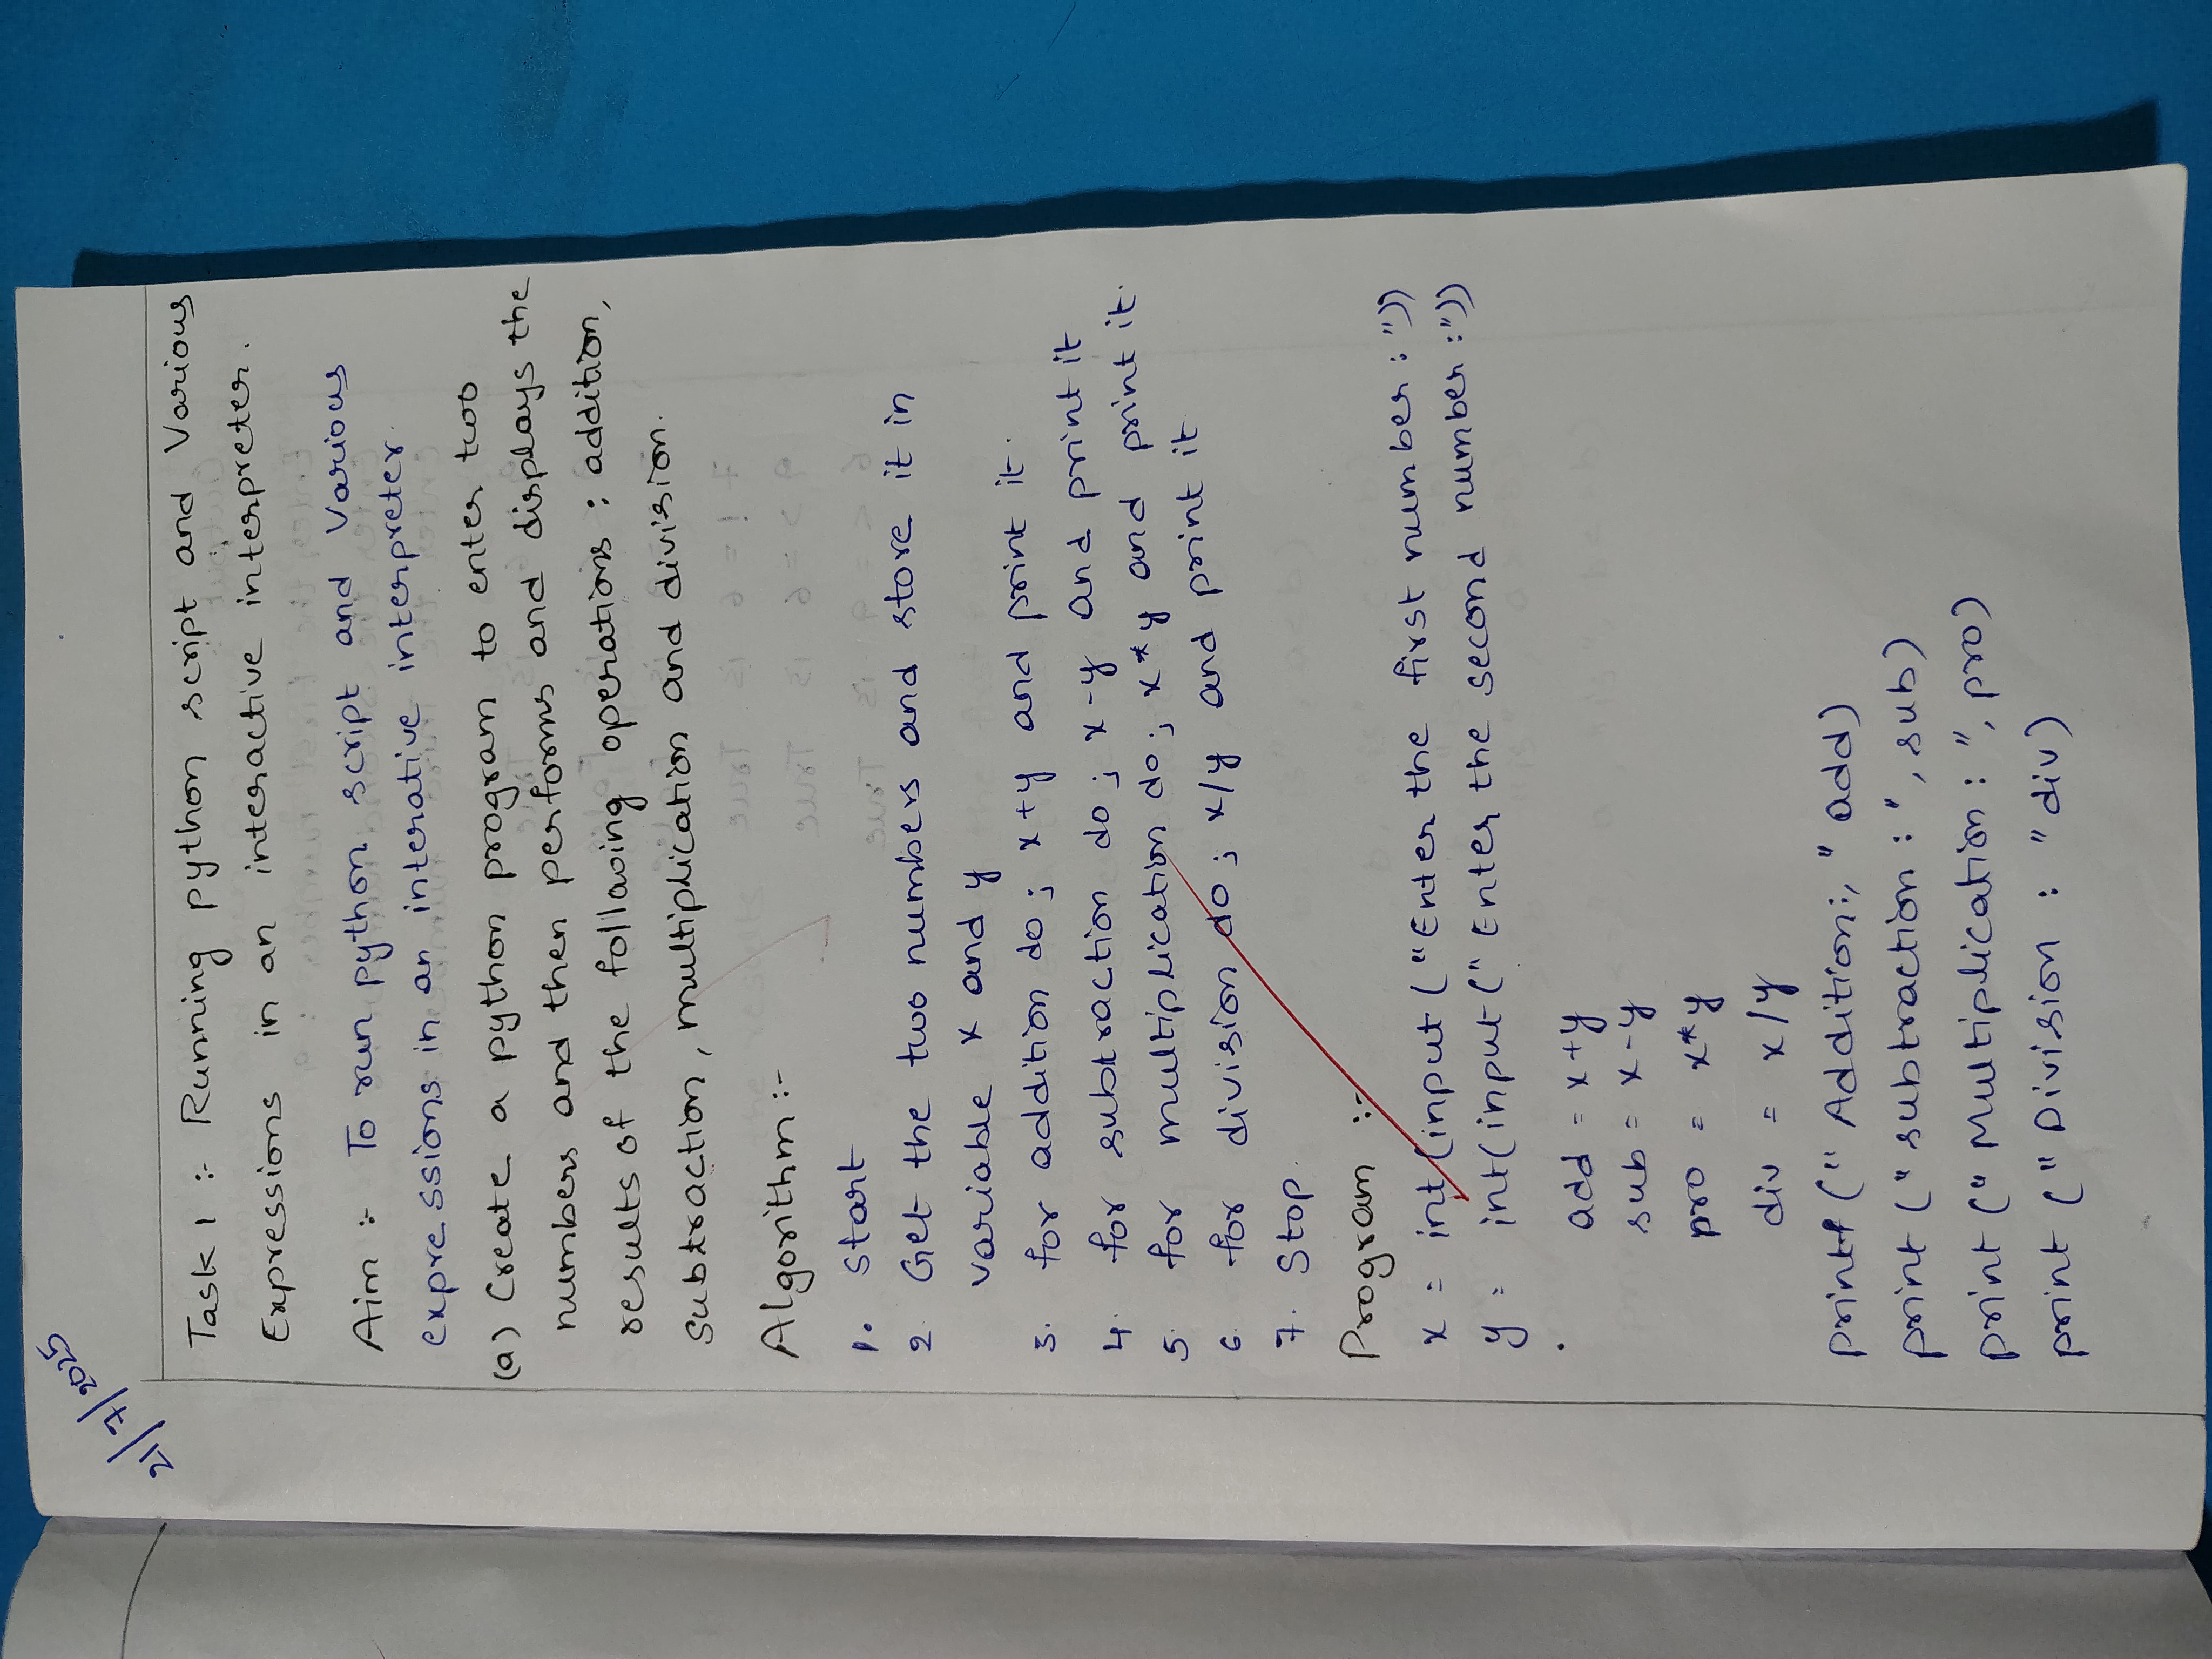 21/7/2025
Task 1 :- Running python script and Various
Expressions in an interactive interpreter.
Aim :- To run python script and Various
expressions in an interative interpreter.
(a) Create a python program to enter two
numbers and then performs and displays the
results of the following operations : addition,
subtraction, multiplication and division.
Algorithm :-
1. Start
2. Get the two numbers and store it in
variable x and y
3. for addition do ; x+y and print it.
4. for subtraction do ; x-y and print it
5. for multiplication do ; x*y and print it.
6. for division do ; x/y and print it
7. Stop.
Program :-
x = int(input ("Enter the first number : "))
y = int(input (" Enter the second number :"))
add = x+y
sub = x-y
pro = x*y
div = x/y
printf (" Addition:, " add)
print (" subtraction : ", sub)
print (" Multiplication : ", pro)
print (" Division : " div)